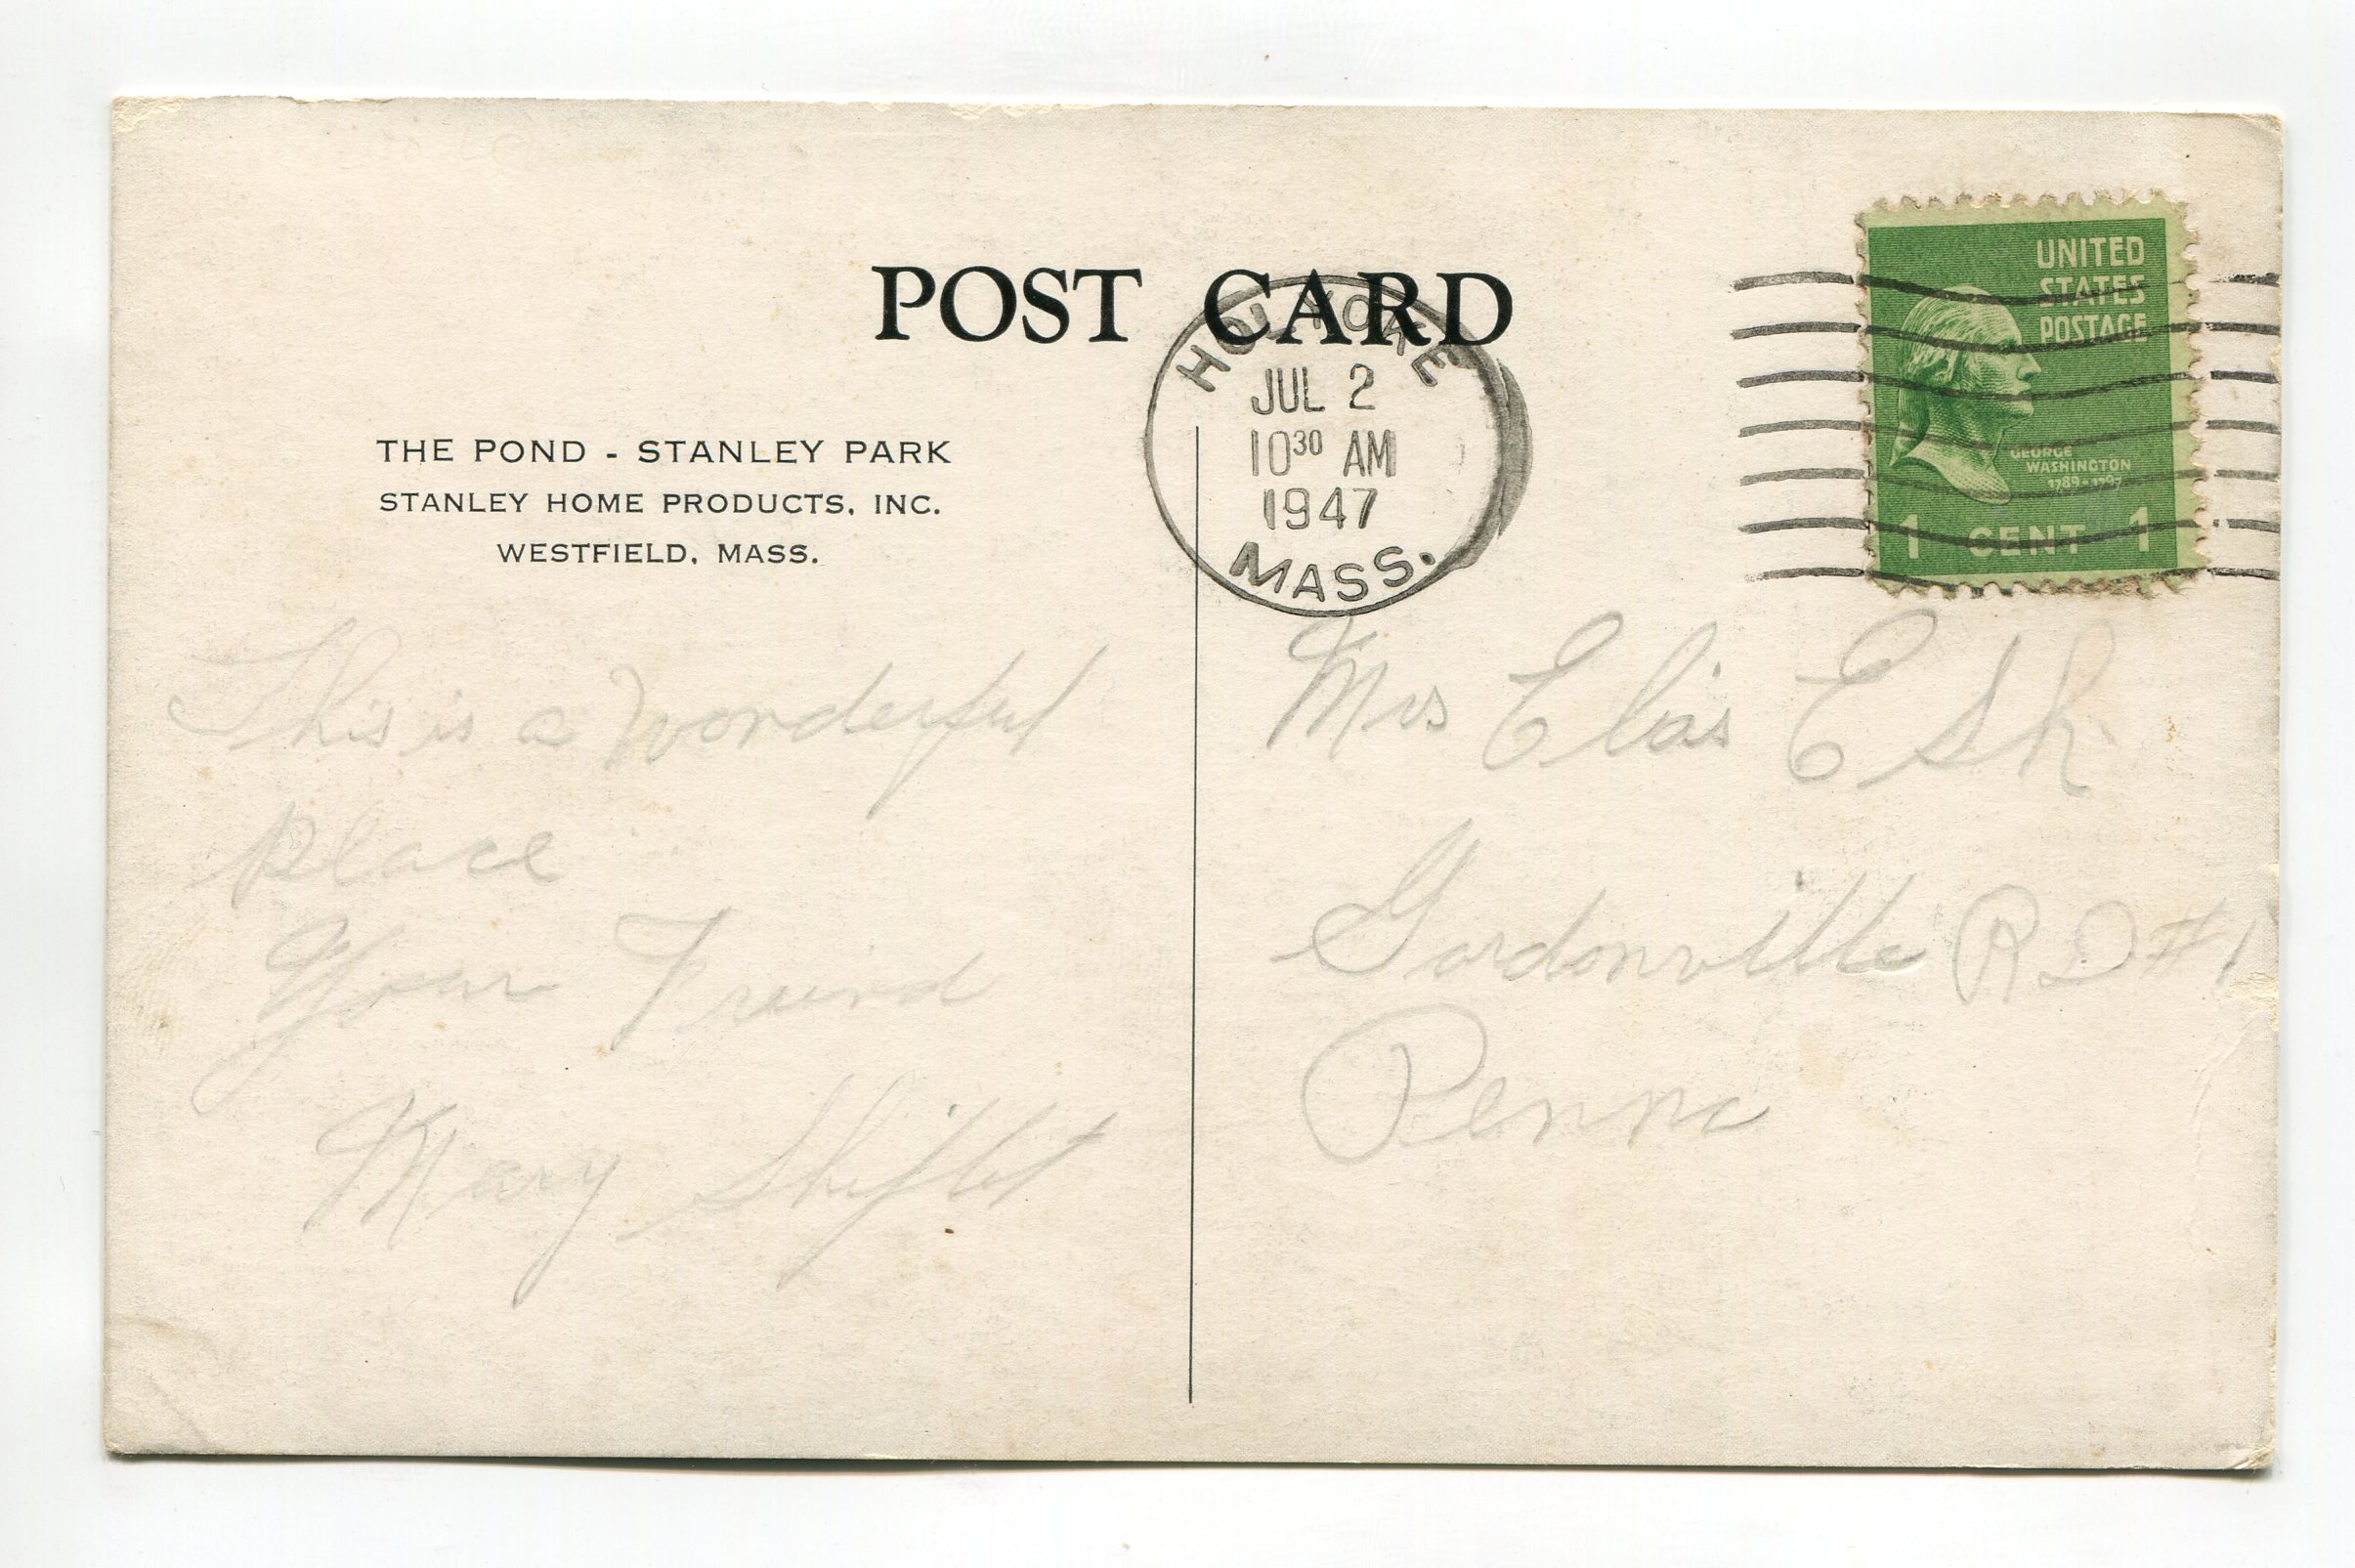 POST CARD
HOLYOKE
JUL 2
10³⁰ AM
1947
MASS.
UNITED
STATES
POSTAGE
GEORGE
WASHINGTON
1789 - 1797
1 CENT 1
THE POND - STANLEY PARK
STANLEY HOME PRODUCTS, INC.
WESTFIELD, MASS.
This is a Wonderful
place
Your Freind
Mary Shiflet
Mrs Elias Esh
Gordonville RD #1
Penna